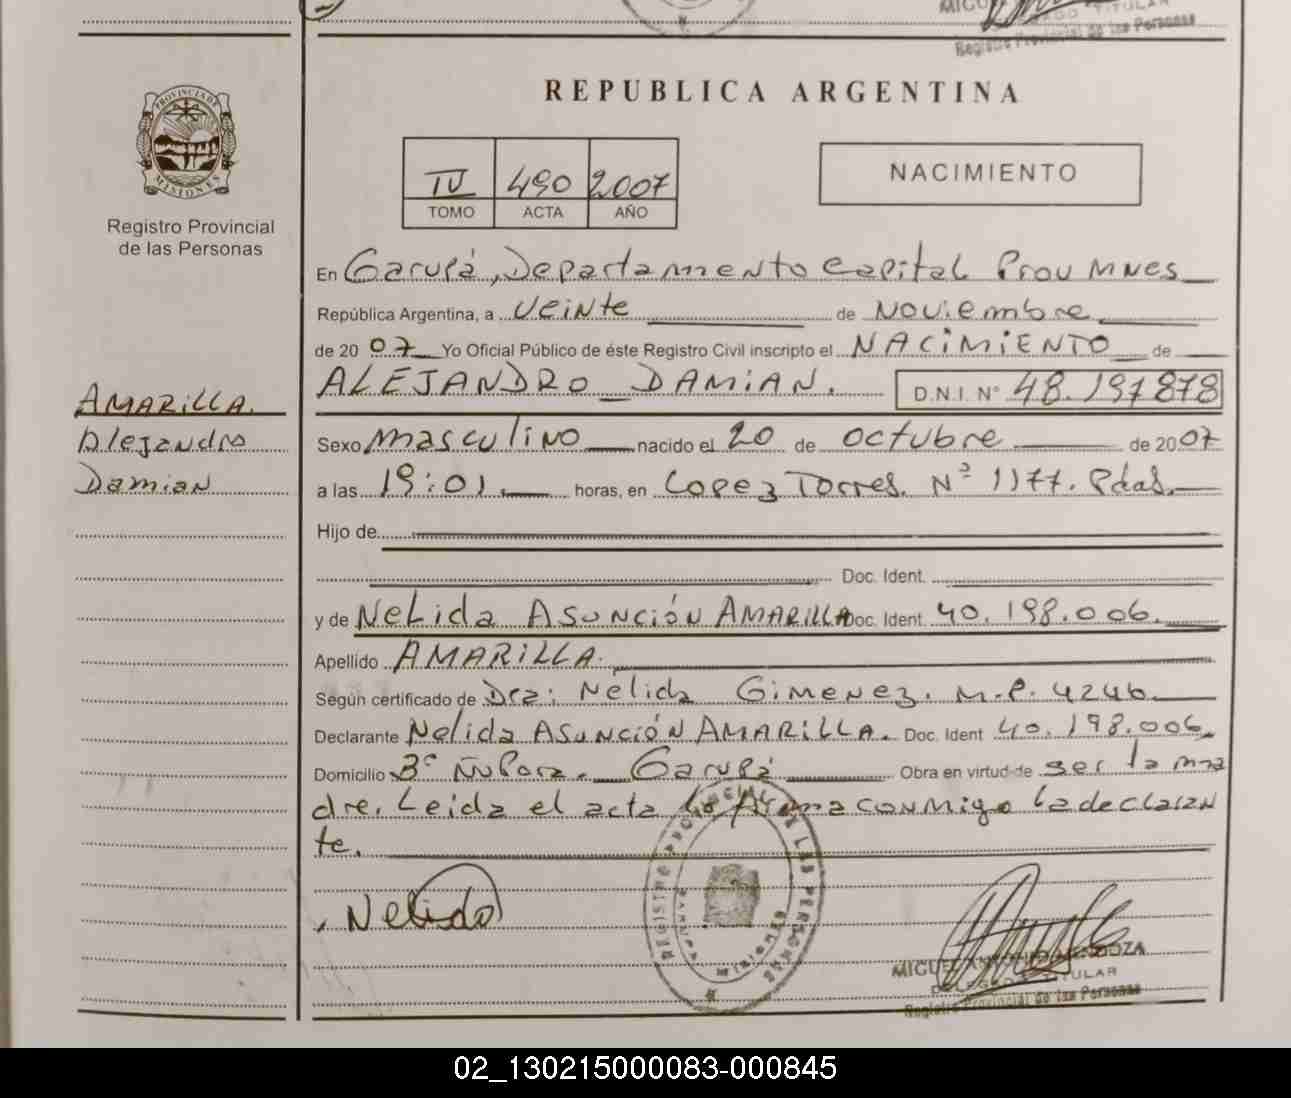 MIGU
TITULAR
Registro Provincial de las Personas
REPUBLICA ARGENTINA
PROVINCIA DE
MISIONES
Registro Provincial
de las Personas
IV 490 2007
TOMO ACTA AÑO
NACIMIENTO
En Garupá, Departamento Capital Prov Mnes
República Argentina, a veinte de Noviembre
de 2007 Yo Oficial Público de éste Registro Civil inscripto el NACIMIENTO de
ALEJANDRO DAMIAN. D.N.I. N° 48.197878
AMARILLA.
Alejandro
Damian
Sexo masculino nacido el 20 de octubre de 2007
a las 19:01. horas, en Lopez Torres. Nº 1177. Pdas.
Hijo de
Doc. Ident.
y de Nelida Asunción AMARILLA Doc. Ident. 40.198.006.
Apellido AMARILLA.
Según certificado de Dra: Nélida Gimenez. M.P. 4246.
Declarante Nelida Asunción AMARILLA. Doc. Ident 40.198.006.
Domicilio Bº Ñu Pora. Garupá Obra en virtud de ser la ma
dre. Leida el acta la firma conmigo la declaran
te.
Nelida
REGISTRO PROVINCIAL DE LAS PERSONAS
MISIONES
MIGUEL MENDOZA
TITULAR
Registro Provincial de las Personas
02_130215000083-000845